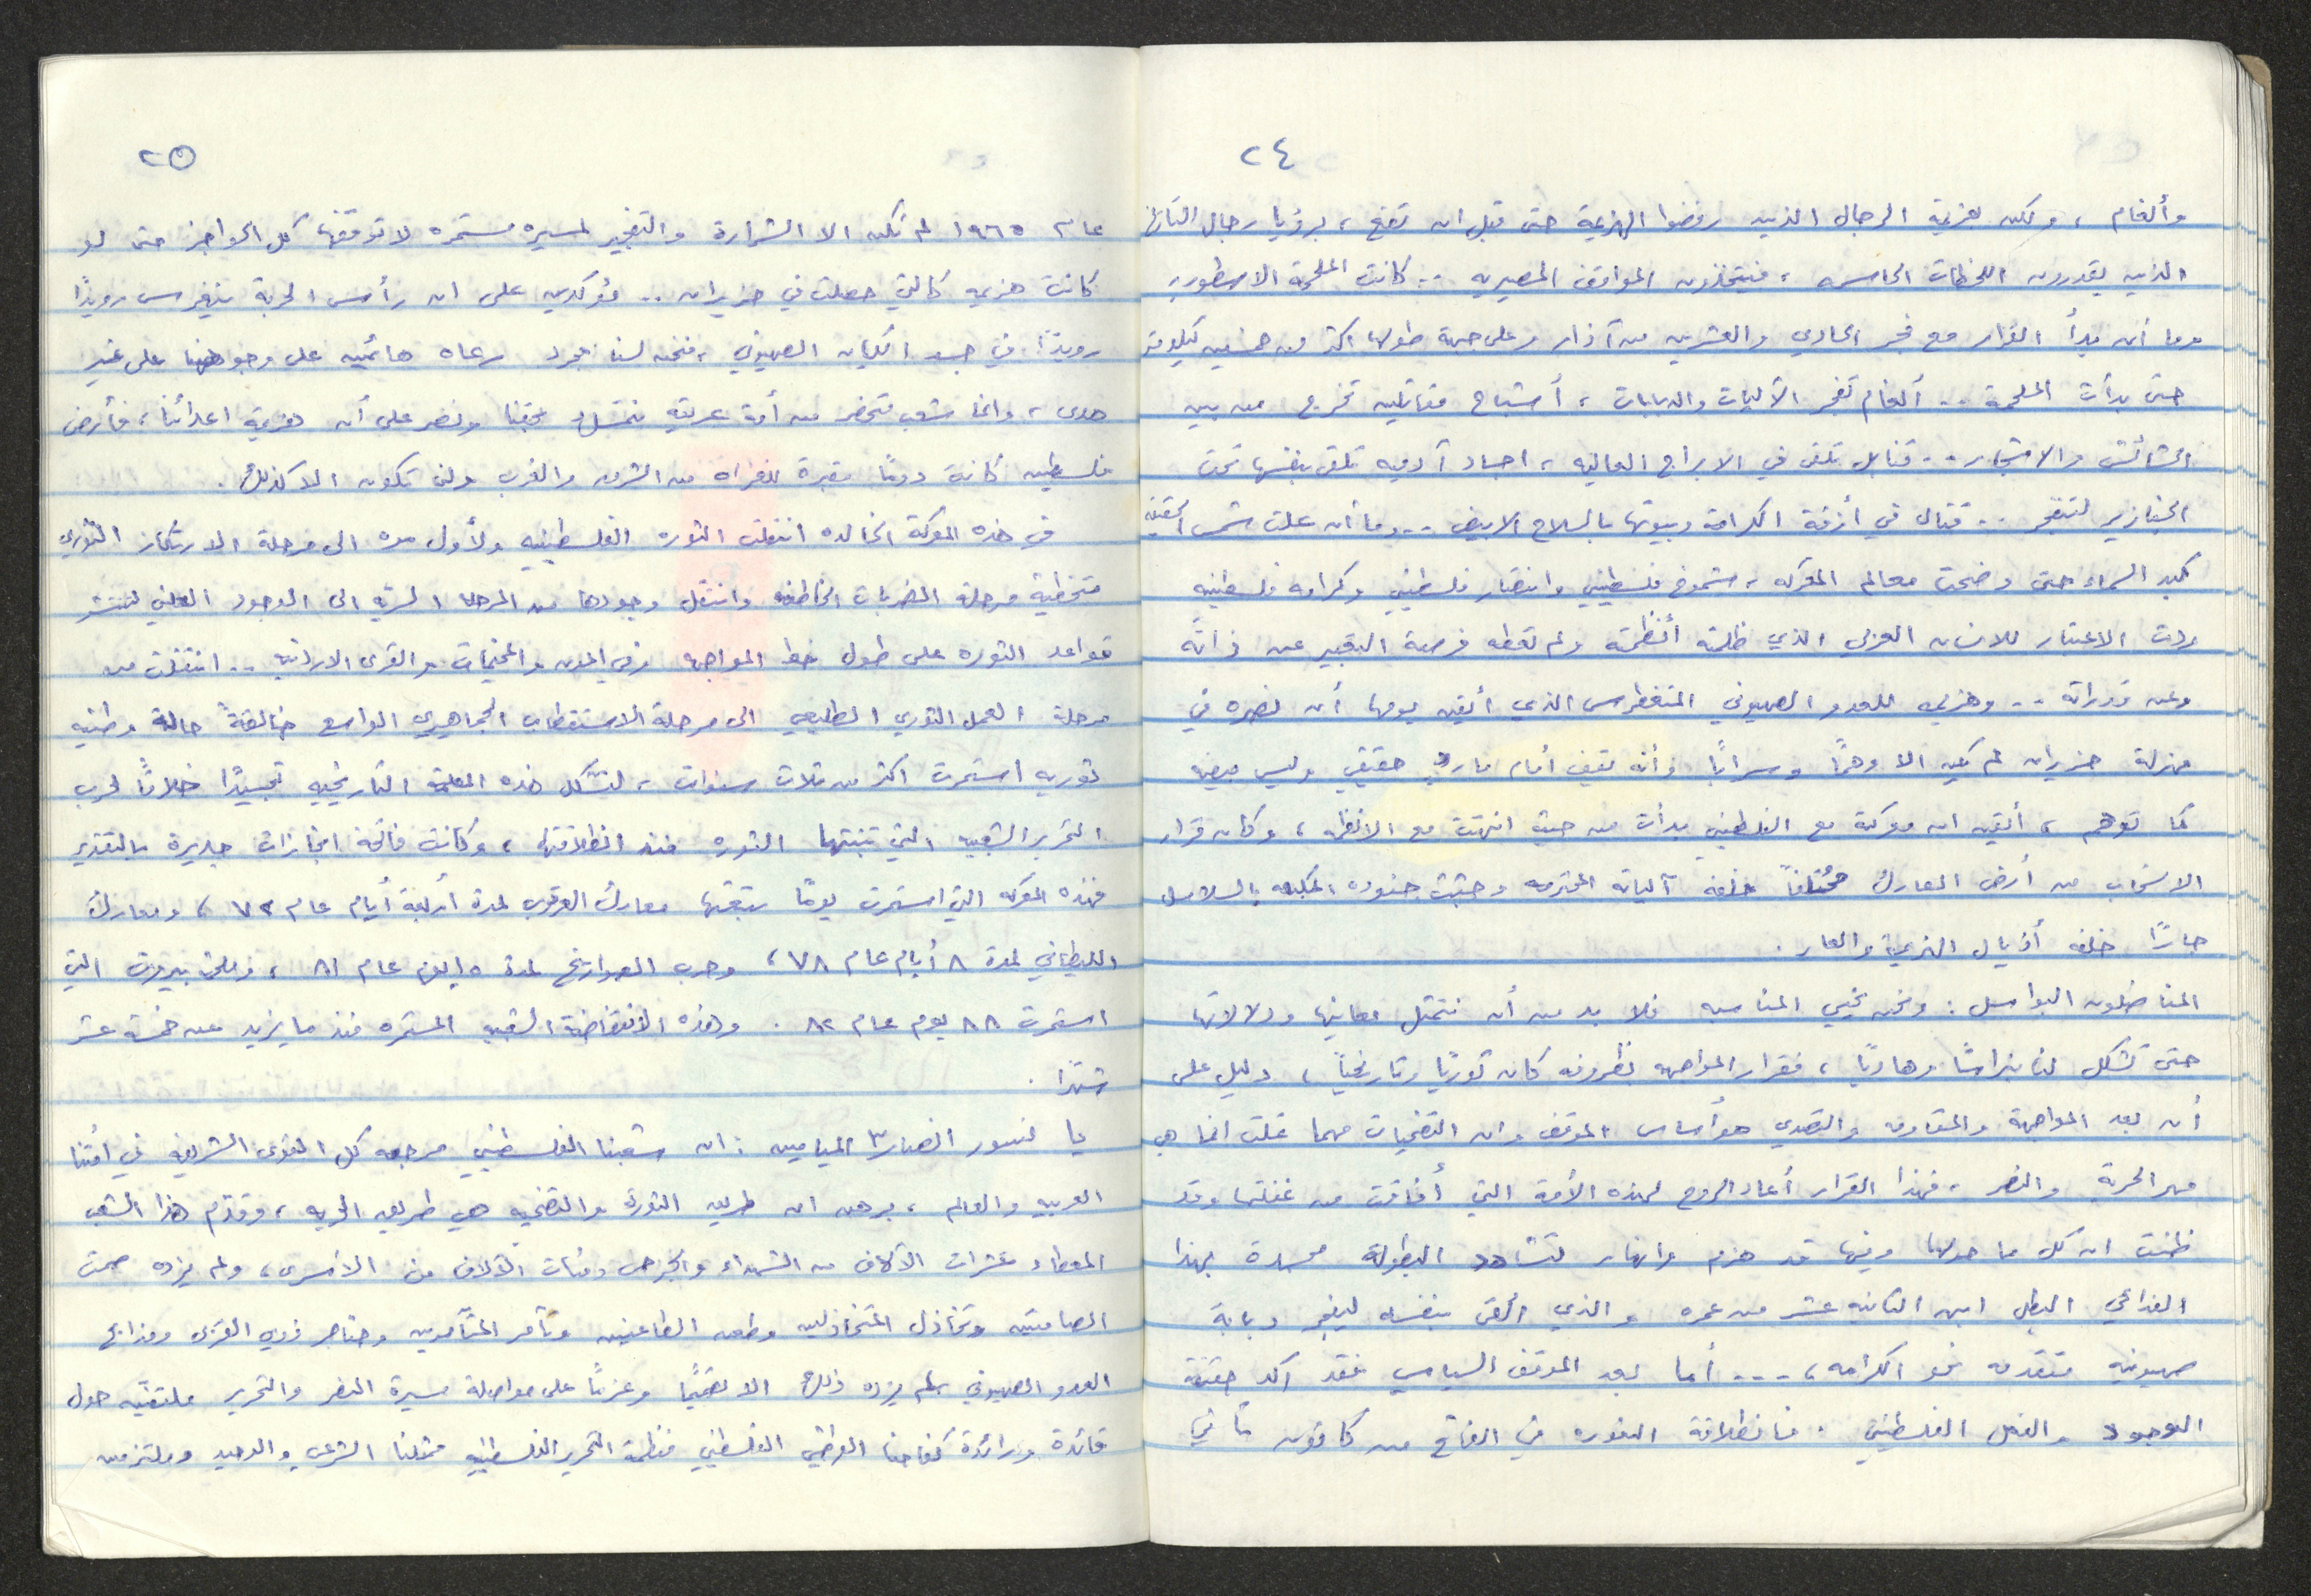 ٢٤
وألغام ، ولكن بعزيمة الرجال الذين رفضوا الهزيمة حتى قبل ان تقع ، برؤيا رجال التاريخ
الذين يقدرون اللحظات الحاسمه ، فيتخذون المواقف المصيريه .. كانت الملحمة الاسطوريه
وما أن بدأ القرار مع فجر الحادي والعشرين من آذار وعلى جبهة طولها اكثر من خمسين كيلومتر
حتى بدأت الملحمة .. ألغام تفجر الآليات والدبابات ، أشباح مقاتلين تخرج من بين
الحشائش والاشجار .. قنابل تلقى في الابراج العاليه ، اجساد آدميه تلقى بنفسها تحت
الجنازير لتنفجر .. قتال في أزقة الكرامة وبيوتها بالسلاح الابيض .. وما أن علت شمس الحقيقة
كبد السماء حتى وضحت معالم المعركه ، شموخ فلسطيني وانتصار فلسطيني وكرامه فلسطينيه
ردت الاعتبار للانسان العربي الذي ظلمته أنظمته ولم تعطه فرصة التعبير عن ذاته
وعن قدراته .. وهزيمه للعدو الصهيوني المتغطرس الذي أيقن يومها أن نصره في
مهزلة حزيران لم يكن الا وهمًا وسرابًا وأنه يقف أمام مارد حقيقي وليس
كما توهم ، أيقن ان معركة مع الفلسطيني بدأت من حيث انتهت مع الانظمه ، وكان قرار
الانسحاب من أرض المعارك مخلفاً خلفه آلياته المحترقه وجثث جنوده المكبله بالسلاسل
جارًا خلفه أذيال الهزيمة والعار .
المناضلون البواسل : ونحن نحيي المناسبه فلا بد من أن نتمثل معانيها ودلالاتها
حتى تشكل لنا نبراسًا وهاديًا ، فقرار المواجهه بظروفه كان ثوريًا وتاريخياً ، دليل على
أن بعد المواجهة والمقاومه والتصدي هو أساس الموقف وان التضحيات مهما غلت انما هي
مهر الحرية والنصر ، فهذا القرار أعاد الروح لهذه الأمة التي أفاقت من غفلتها وقد
ظنت ان كل ما حولها وفيها قد هزم وانهار لتشاهد البطولة مجسدة بهذا
الفدائي البطل ابن الثانيه عشر من عمره والذي ألقى بنفسه ليفجر دبابة
صهيونيه متقدمه نحو الكرامه ، ... أما بعد الموقف السياسي فقد اكد حقيقة
الوجود والفعل الفلسطيني . فانطلاقة الثوره في الفاتح من كانون ثاني
٢٥
عام ١٩٦٥ لم تكن الا الشرارة والتفجير لمسيره مستمره لا توقفها كل الحواجز حتى لو
كانت هزيمه كالتي حصلت في حزيران .. مؤكدين على ان رأس الحربة تنغرس رويدًا
رويدًا في جسد الكيان الصهيوني ، فنحن لسنا مجرد رعاه هائمين على وجوههنا على غير
هدى ، وانما شعب متحضر من أمة عريقه نتمسك بحقنا ونصر على أن هزيمة اعدائنا ، فأرض
فلسطين كانت دومًا مقبرة للغزاه من الشرق والغرب ولن تكون الا كذلك .
في هذه المعركة الخالده انتقلت الثوره الفلسطينيه ولأول مره الى مرحلة الارتكاز الثوري
متخطية مرحلة الضربات الخاطفه وانتقل وجودها من المرحله السريه الى الوجود العلني لتنتشر
قواعد الثوره على طول خط المواجهه وفي المدن والمخيمات والقرى الاردنيه .. انتقلت من
مرحلة العمل الثوري الطليعي الى مرحلة الاستقطاب الجماهيري الواسع خالقةً حالة وطنيه
ثوريه استمرت اكثر من ثلاث سنوات ، لتشكل هذه المعلمة التاريخيه تجسيدًا خلاقًا لحرب
التحرير الشعبيه التي تبنتها الثوره منذ انطلاقتها ، وكانت فاتحة انجازات جديرة بالتقدير
فهذه المعركه التي استمرت يومًا تبعتها معارك العرقوب لمدة أربعة أيام عام ٧٢ ، ومعارك
الليطاني لمدة ٨ أيام عام ٧٨ ، وحرب الصواريخ لمدة ١٥ يوم عام ٨١ ، وملحمة بيروت التي
استمرت ٨٨ يوم عام ٨٢ . وهذه الانتفاضة الشعبيه المستمره منذ ما يزيد عن خمسة عشر
شهرًا .
يا نسور انصار ٣ الميامين : ان شعبنا الفلسطيني ومعه كل القوى الشريفه في أمتنا
العربيه والعالم ، برهن ان طريق الثورة والتضحيه هي طريق الحريه ، وقدّم هذا الشعب
المعطاء عشرات الآلاف من الشهداء والجرحى ومئات الآلاف من الأسرى ، ولم يزده صمت
الصامتين وتخاذل المتخاذلين وطعن الطاعنين وتآمر المتآمرين وخناجر ذوي القربى ومذابح
العدو الصهيوني لم يزده ذلك الا تصميمًا وعزمًا على مواصلة مسيرة النصر والتحرير ملتفين حول
قائدة ورائدة كفاحنا الوطني الفلسطيني منظمة التحرير الفلسطينيه ممثلنا الشرعي والوحيد وملتزمين